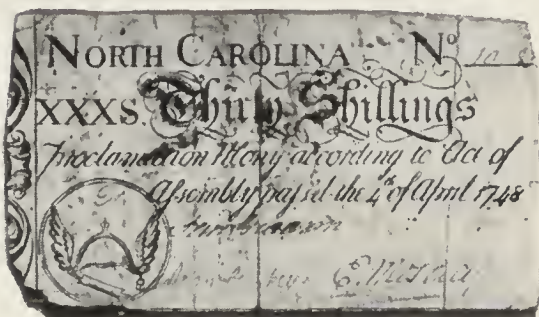 NORTH CAROLINA No
XXXS. Thirty Shillings
Proclamation Mony according to Act of
Assembly passed the 4th of April 1748